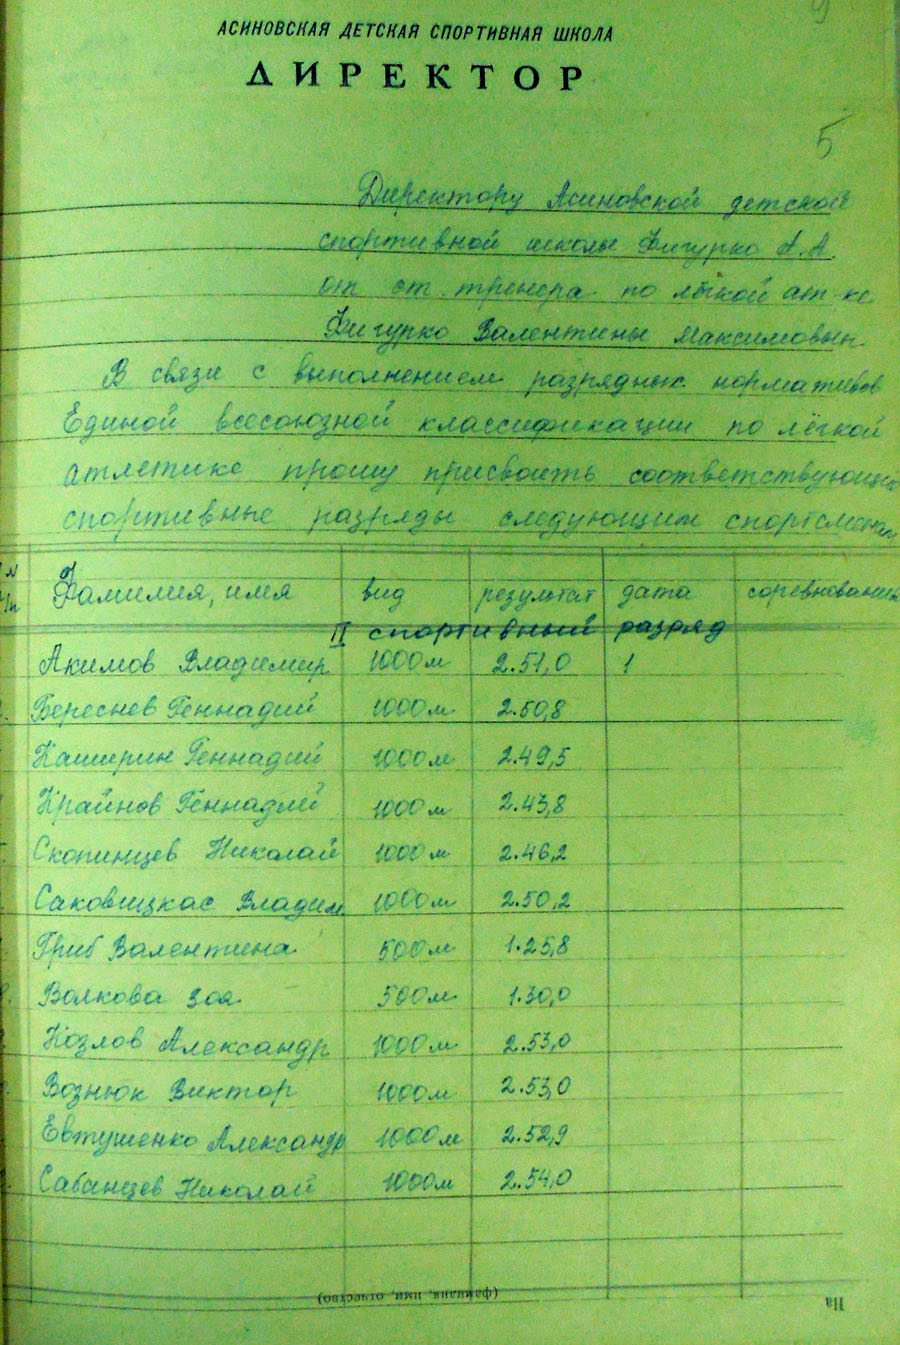 АСИНОВСКАЯ ДЕТСКАЯ СПОРТИВНАЯ ШКОЛА
ДИРЕКТОР
5
Директору Асиновской детской
спортивной школы Фигурко А.А.
от ст. тренера по лёгкой ат-ке
Фигурко Валентины Максимовны
В связи с выполнением разрядных нормативов
Единой всесоюзной классификации по лёгкой
атлетике прошу присвоить соответствующие
спортивные разряды следующим спортсменам
Фамилия, имя вид результат дата соревнования
II спортивный разряд
Акимов Владимир 1000м 2.51,0 1
Береснев Геннадий 1000м 2.50,8
Каширин Геннадий 1000м 2.49,5
Крайнов Геннадий 1000м 2.43,8
Скопинцев Николай 1000м 2.46,2
Владим 1000м 2.50,2
Гриб Валентина 500м 1.25,8
Волкова Зоя 500м 1.30,0
Козлов Александр 1000м 2.53,0
Вознюк Виктор 1000м 2.53,0
Евтушенко Александр 1000м 2.52,9
Сабанцев Николай 1000м 2.54,0
(фамилия, имя, отчество)
На